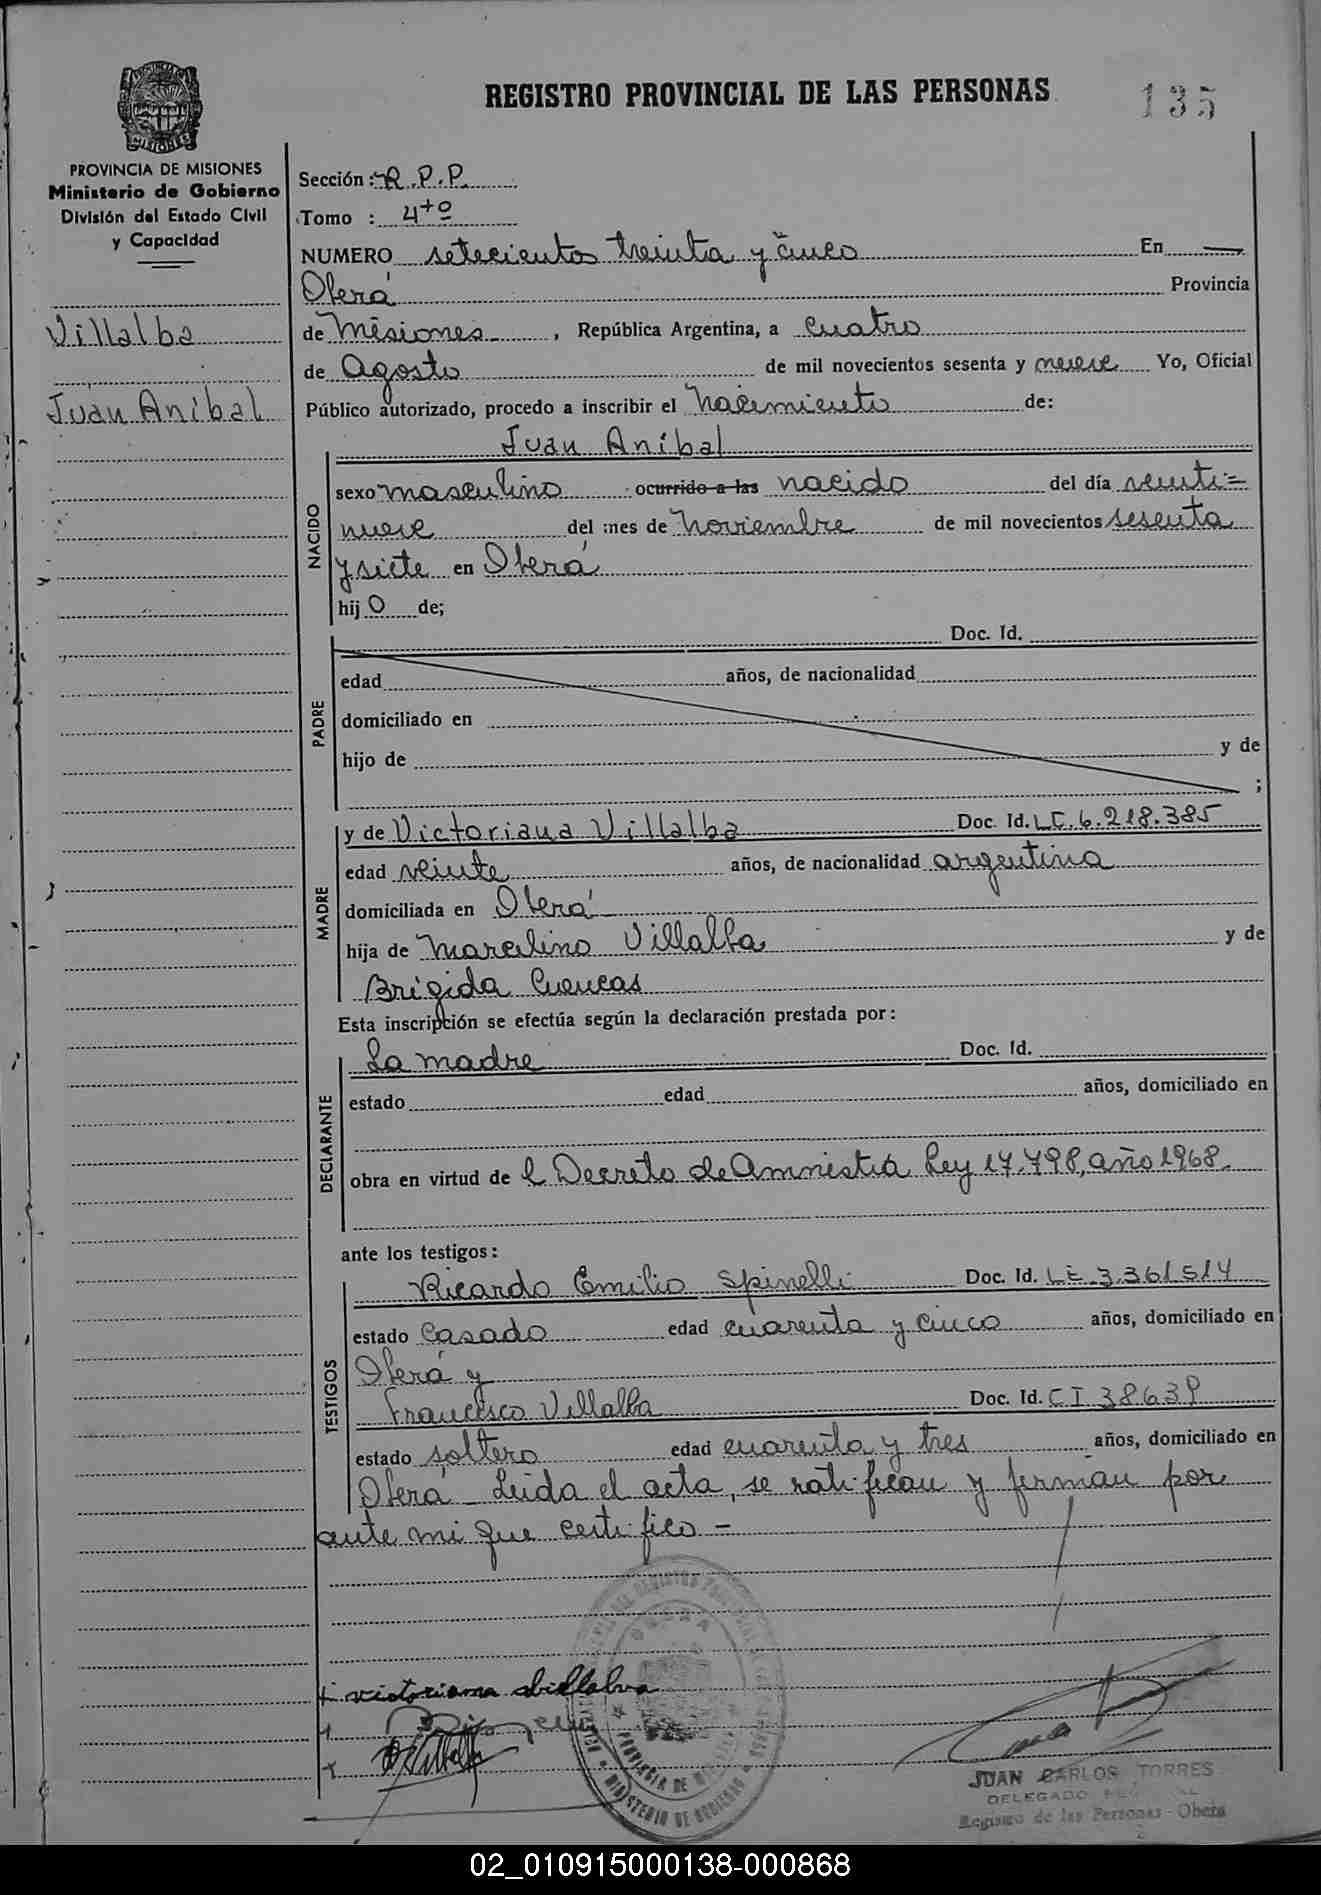 REGISTRO PROVINCIAL DE LAS PERSONAS
135
PROVINCIA DE MISIONES
Ministerio de Gobierno
División del Estado Civil
y Capacidad
Villalba
Juan Aníbal
Sección : R.P.P.
Tomo : 4to
NUMERO setecientos treinta y cinco En
Oberá Provincia
de Misiones , República Argentina, a cuatro
de Agosto de mil novecientos sesenta y nueve Yo, Oficial
Público autorizado, procedo a inscribir el Nacimiento de:
Juan Aníbal
NACIDO
sexo masculino ocurrido a las nacido del día veinti=
nueve del mes de Noviembre de mil novecientos sesenta
y siete en Oberá
hij o de;
PADRE
Doc. Id.
edad años, de nacionalidad
domiciliado en
hijo de y de
;
MADRE
y de Victoriana Villalba Doc. Id. LC.6.218.385
edad veinte años, de nacionalidad argentina
domiciliada en Oberá
hija de Marcelino Villalba y de
Brigida Cuencas
Esta inscripción se efectúa según la declaración prestada por:
DECLARANTE
La madre Doc. Id.
estado edad años, domiciliado en
obra en virtud de l Decreto de Amnistia Ley 17.798, año 1968.
ante los testigos:
TESTIGOS
Ricardo Emilio Spinelli Doc. Id. LE 3.361514
estado Casado edad cuarenta y cinco años, domiciliado en
Oberá y
Francisco Villalba Doc. Id. CI 38639
estado soltero edad cuarenta y tres años, domiciliado en
Oberá - Leida el acta, se ratifican y firman por
ante mi que certifico -
victoriana villalva
PROVINCIA DE MISIONES
MINISTERIO DE GOBIERNO
JUAN CARLOS TORRES
DELEGADO
Registro de las Personas - Oberá
02_010915000138-000868